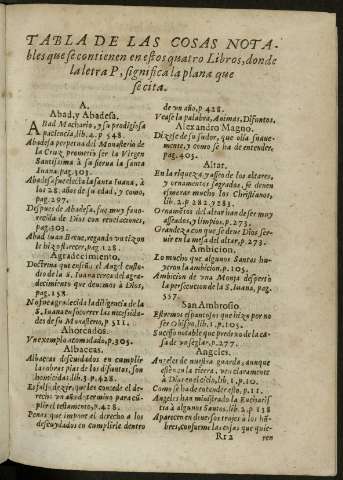 TABLA DE LAS COSAS NOTA-
bles que se contienen en estos quatro Libros, donde
la letra P, significa la plana que
se cita.
A.
Abad, y Abadesa.
ABad Machario, y su prodigiosa
paciencia, lib. 4. p. 548.
Abadesa perpetua del Monasterio de
la Cruz prometiò ser la Virgen
Santissima à su sierva la santa
Iuana, pag. 303.
Abadesa fue electa la santa Iuana, à
los 28. años de su edad, y como,
pag. 297.
Despues de Abadesa, fue muy favo-
recida de Dios con revelaciones,
pag. 303.
Abad Iuan Breve, regando un tizon
le hizo florecer, pag. 128.
Agradecimiento.
Doctrina que enseñò el Angel custo-
dio de la S. Iuana cerca del agra-
decimiento que devemos à Dios,
pag. 158.
No fue agradecida la diligencia de la
S. Iuana en socorrer las necesida-
des de su Monasterio, p. 511.
Ahorcados.
Vn exemplo acomodado, p. 305.
Albaceas.
Albaceas descuidados en cumplir
las obras pias de los difuntos, son
homicidas, lib. 3. p. 428.
Es falso dezir, que les concede el de-
recho un año de termino para cu-
plir el testamento, p. 428.
Penas que impone el derecho à los
descuydados en cumplirle dentro
de un año, p 428.
Vease la palabra, Animas, Difuntos.
Alexandro Magno.
Dizese de su sudor, que olia suave-
mente, y como se ha de entender,
pag. 405.
Altar.
En la riqueza, y asseo de los altares,
y ornamentos sagrados, se deven
esmerar mucho los Christianos,
lib. 2. p. 282. y 283.
Ornamentos del altar han de ser muy
asseados, y limpios, p. 273.
Grandeza con que se deve Dios ser-
vir en la mesa del altar, p. 273.
Ambicion.
Lo mucho que algunos Santos hu-
yeron la ambicion, p. 105.
Ambicion de una Monja despertò
la persecucion de la S. Iuana, pag.
557.
San Ambrosio.
Estremos espantosos que hizo por no
ser Obispo, lib. 1. p. 105.
Sucesso notable que predixo de la ca-
sa de un seglar, p. 277.
Angeles.
Angeles de nuestra guarda, aunque
estèn en la tierra, ven claramente
à Dios en el cielo, lib. 1. p. 10.
Como se ha de entender esto, p. 11.
Angeles han ministrado la Eucharis-
tia à algunos Santos, lib. 2. p 138
Aparecen en diversos trajes à los hõ-
bres, conforme las cosas que quie-
Rr2 ren